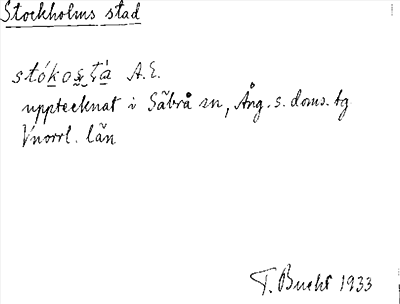 Stockholms stad
stókosta A.E.
upptecknat i Säbrå sn, Ång. s. doms. tg
Vnorrl. län
T. Bucht 1933